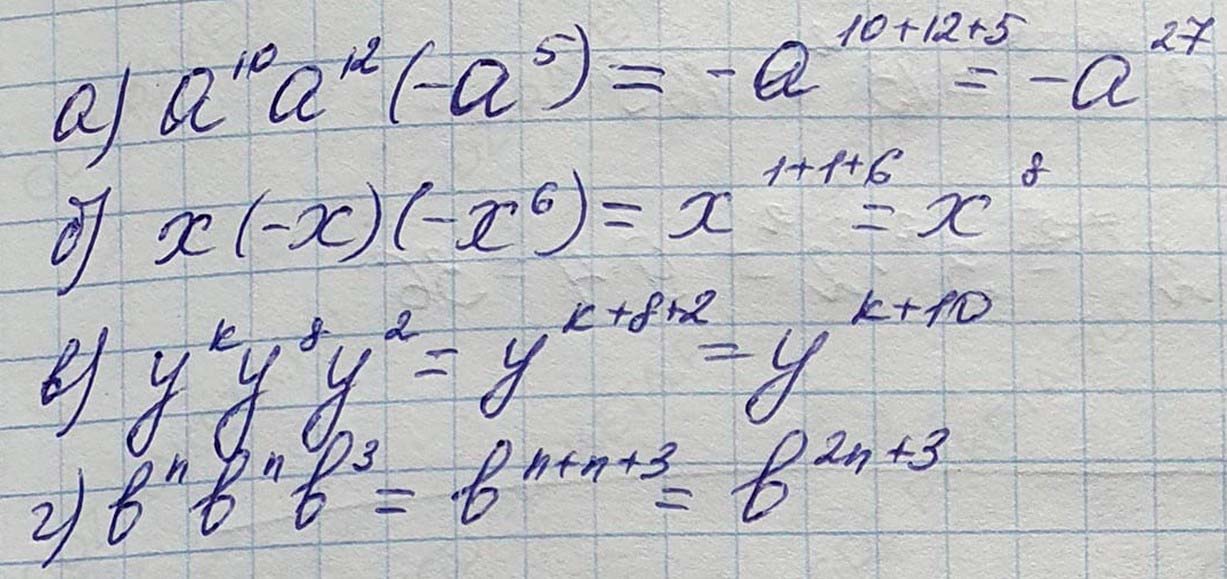 а) a¹⁰a¹²(-a⁵) = -a¹⁰⁺¹²⁺⁵ = -a²⁷
б) x(-x)(-x⁶) = x¹⁺¹⁺⁶ = x⁸
в) yᵏy⁸y² = yᵏ⁺⁸⁺² = yᵏ⁺¹⁰
г) bⁿbⁿb³ = bⁿ⁺ⁿ⁺³ = b²ⁿ⁺³